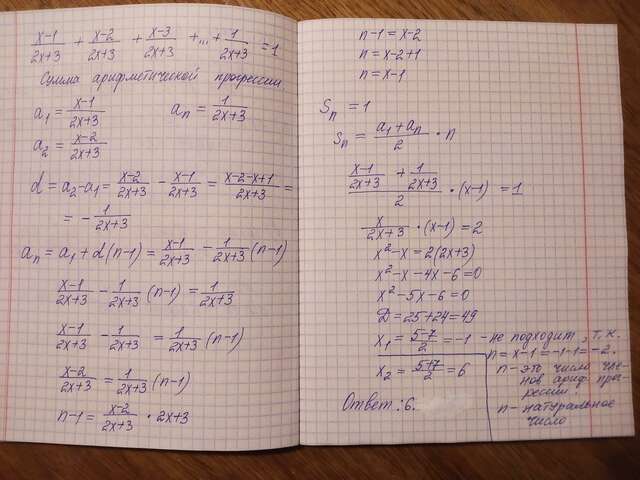 (x-1)/(2x+3) + (x-2)/(2x+3) + (x-3)/(2x+3) + ... + 1/(2x+3) = 1
Сумма арифметической прогрессии.
a₁ = (x-1)/(2x+3) aₙ = 1/(2x+3)
a₂ = (x-2)/(2x+3)
d = a₂-a₁ = (x-2)/(2x+3) - (x-1)/(2x+3) = (x-2-x+1)/(2x+3) =
= - 1/(2x+3)
aₙ = a₁ + d(n-1) = (x-1)/(2x+3) - 1/(2x+3) (n-1)
(x-1)/(2x+3) - 1/(2x+3) (n-1) = 1/(2x+3)
(x-1)/(2x+3) - 1/(2x+3) = 1/(2x+3) (n-1)
(x-2)/(2x+3) = 1/(2x+3) (n-1)
n-1 = (x-2)/(2x+3) · 2x+3
n-1 = x-2
n = x-2+1
n = x-1
Sₙ = 1
Sₙ = (a₁ + aₙ)/2 · n
((x-1)/(2x+3) + 1/(2x+3))/2 · (x-1) = 1
x/(2x+3) · (x-1) = 2
x²-x = 2(2x+3)
x²-x-4x-6=0
x²-5x-6=0
D = 25+24=49
x₁ = (5-7)/2 = -1 - не подходит, т.к.
n = x-1 = -1-1 = -2.
x₂ = (5+7)/2 = 6
n - это число чле-
нов ариф. про-
грессии.
n - натуральное
число
Ответ: 6.